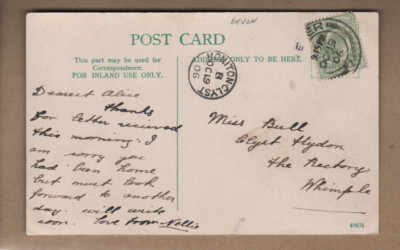 DEVON
POST CARD
This space may be used for
Correspondence.
FOR INLAND USE ONLY.
ADDRESS ONLY TO BE HERE.
HONITON CLYST
B
OC 19
06
Dearest Alice
thanks
for letter received
this morning. I
am sorry you
had been home
but must look
forward to another
day. will write
soon. love from Nellie
Miss Bull
Clyst Hydon
The Rectory
Whimple